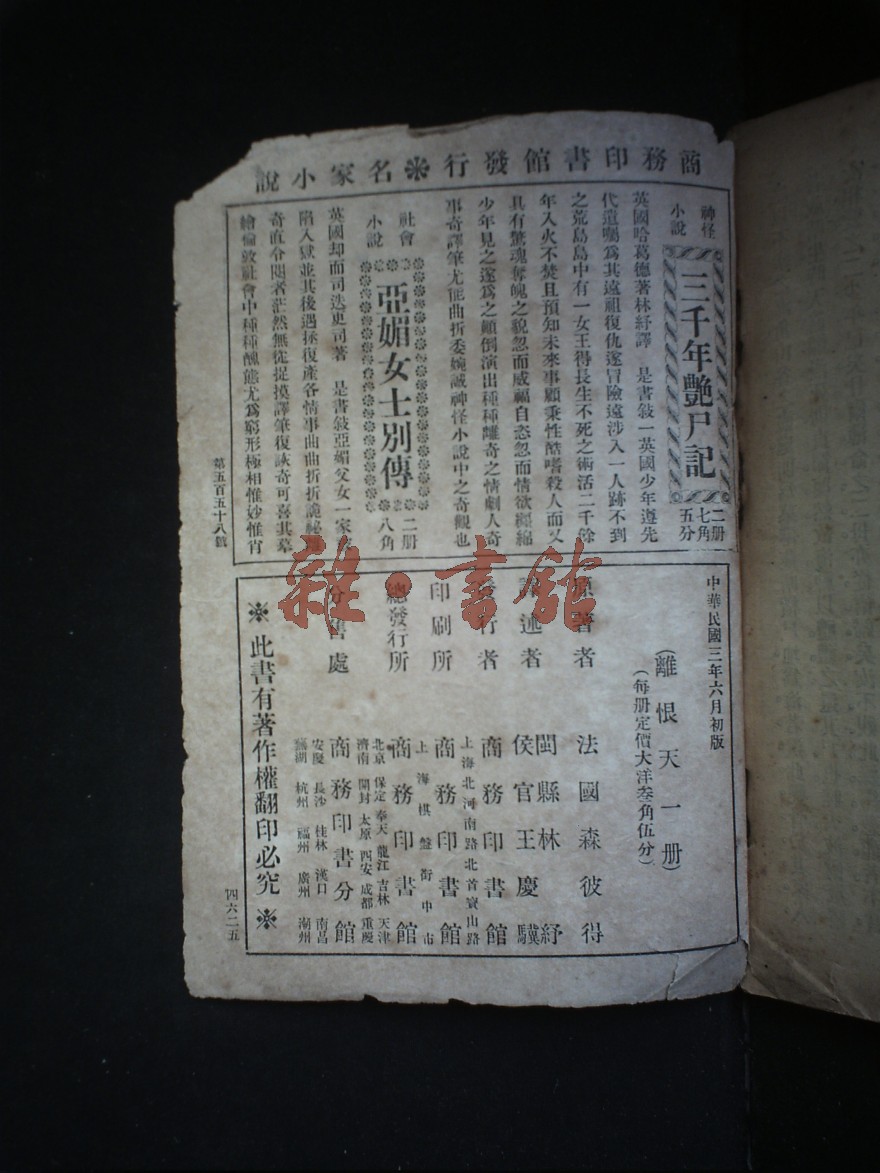 商務印書館發行※名家小說
神怪
小說
三千年艷尸記
二册
七角
五分
英國哈葛德著林紓譯 是書敍一英國少年遵先
代遺囑爲其遠祖復仇遂冒險遠涉入一人跡不到
之荒島島中有一女王得長生不死之術活二千餘
年入火不焚且預知未來事顧秉性酷嗜殺人而又
具有驚魂奪魄之貌忽而威福自恣忽而情欲纒綿
少年見之遂爲之顚倒演出種種離奇之情劇人奇
事奇譯筆尤能曲折委婉誠神怪小說中之奇觀也
社會
小說
亞媚女士別傳
二册
八角
英國却而司迭更司著 是書敍亞媚父女一家
陷入獄並其後遇拯復產各情事曲曲折折詭秘
奇直令閱者茫然無從捉摸譯筆復詼奇可喜其摹
繪倫敦社會中種種醜態尤爲窮形極相惟妙惟肖
第五百五十八號
中華民國三年六月初版
(離恨天一册)
(每册定價大洋叁角伍分)
原著者 法國森彼得
譯述者 閩縣林紓
侯官王慶驥
發行者 商務印書館
上海北河南路北首寶山路
印刷所 商務印書館
上海棋盤街中市
總發行所 商務印書館
北京 保定 奉天 龍江 吉林 天津
濟南 開封 太原 西安 成都 重慶
分售處 商務印書分館
安慶 長沙 桂林 漢口 南昌
蕪湖 杭州 福州 廣州 潮州
※此書有著作權翻印必究※
四六二五
雜·書館